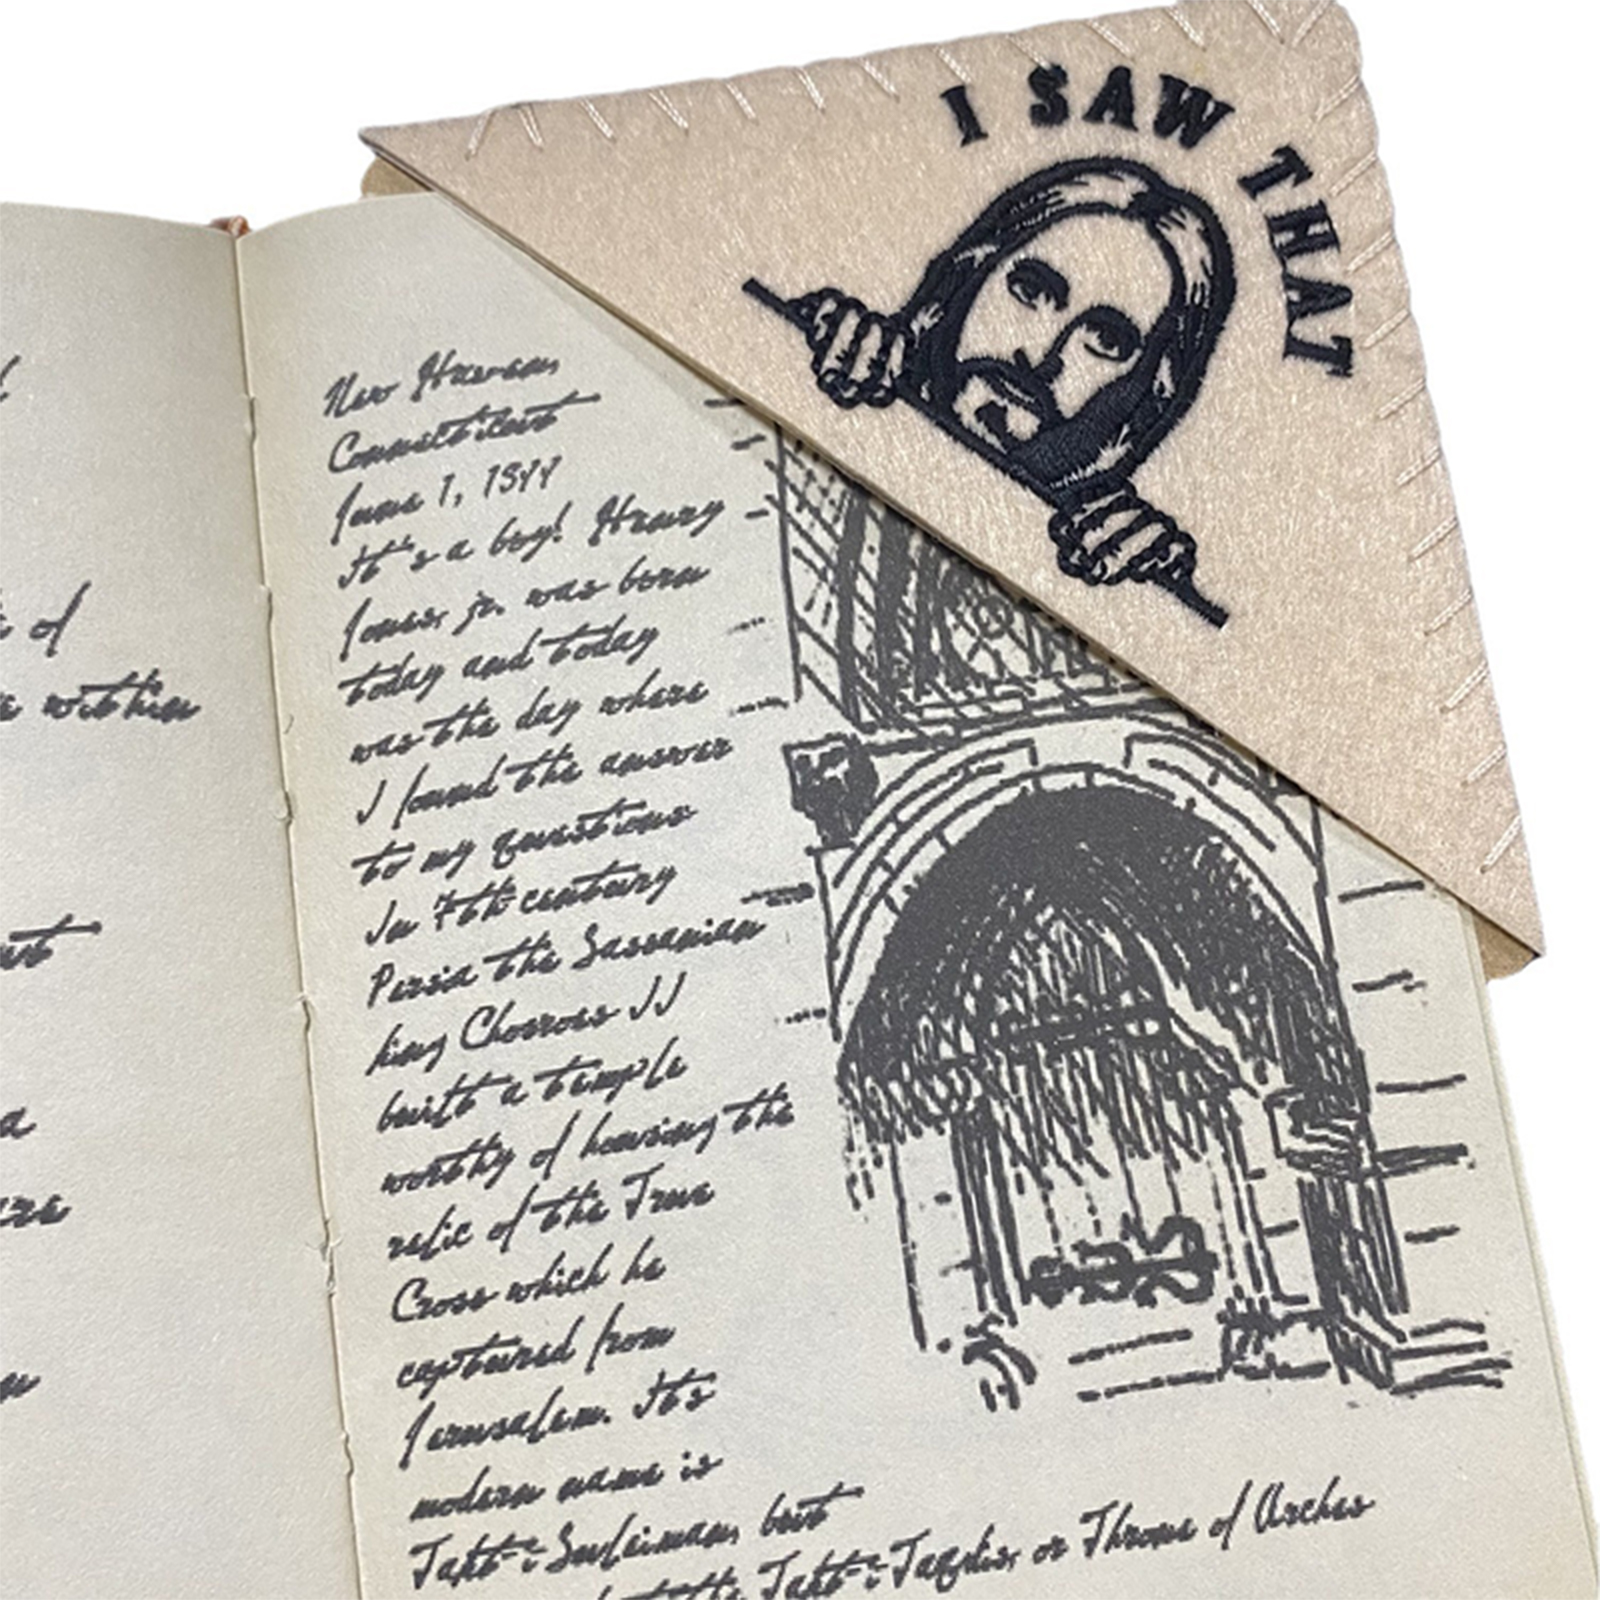 I SAW THAT
of
within
a
New Haven,
Connecticut
June 1, 1899
It's a boy! Henry
Jones, jr. was born
today and today
was the day where
I found the answer
to my questions
In 7th century
Persia the Sassanian
king Chosroes II
built a temple
worthy of housing the
relic of the True
Cross which he
captured from
Jerusalem. It's
modern name is
Takt-i Suleiman, but
the Takt-i Taqdis, or Throne of Arches